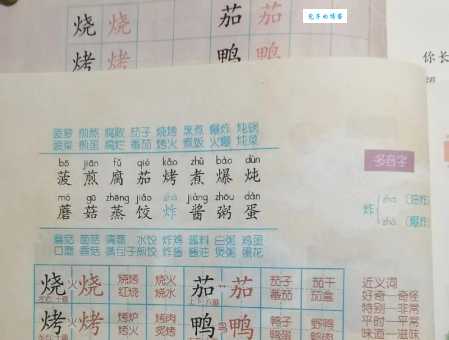 烧 烧 茄 茄
烤 烤 鸭 鸭
你长
菠萝 煎熬 腐败 茄子 烧烤 烹煮 爆炸 炖锅
菠菜 煎蛋 腐烂 番茄 烤火 煮饭 火爆 炖菜
bō jiān fǔ qié kǎo zhǔ bào dùn
菠 煎 腐 茄 烤 煮 爆 炖
mó gū zhēng jiǎo zhá jiàng zhōu dàn
蘑 菇 蒸 饺 炸 酱 粥 蛋
蘑菇 香菇 清蒸 水饺 炸鸡 酱料 白粥 鸡蛋
口蘑
多音字
炸
zhá
zhà
烧 烧 烧烤 烧火 茄 茄 茄子 茄干 近义词
红烧 烧水 番茄 茄盒 好奇—奇怪
特别—非常
烤 烤 烤炉 烤肉 鸭 鸭 鸭子 野鸭 平时—平常
烤火 炙烤 味道—滋味